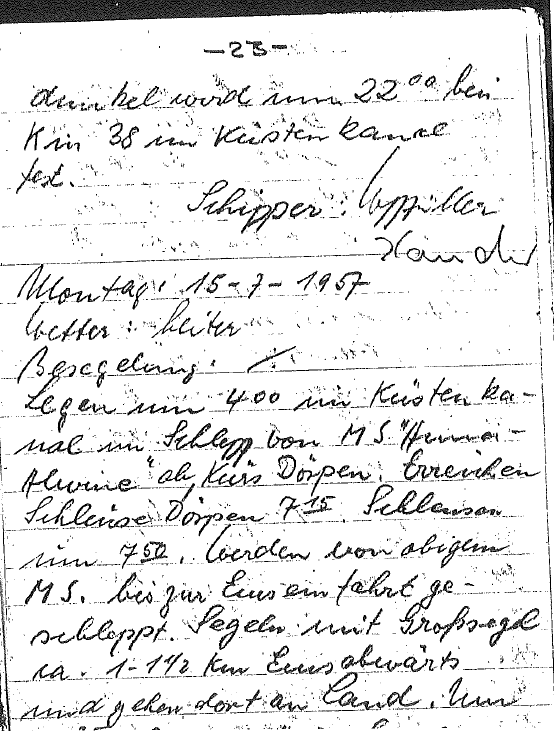 -23-
dunkel wird um 22⁰⁰ bei
Km 38 im Küstenkanal
fest.
Schipper:
Montag: 15-7-1957
Wetter: heiter
Besegelung: ∕.
Legen um 4⁰⁰ im Küstenka-
nal im Schlepp von MS "Anna-
Alwine" ab, Kurs Dörpen. Erreichen
Schleuse Dörpen 7¹⁵. Schleusen
um 7⁵⁰. Werden von obigem
MS. bis zur Emseinfahrt ge-
schleppt. Segeln mit Großsegel
ca. 1-1½ Km Emsabwärts
und gehen dort an Land. Um